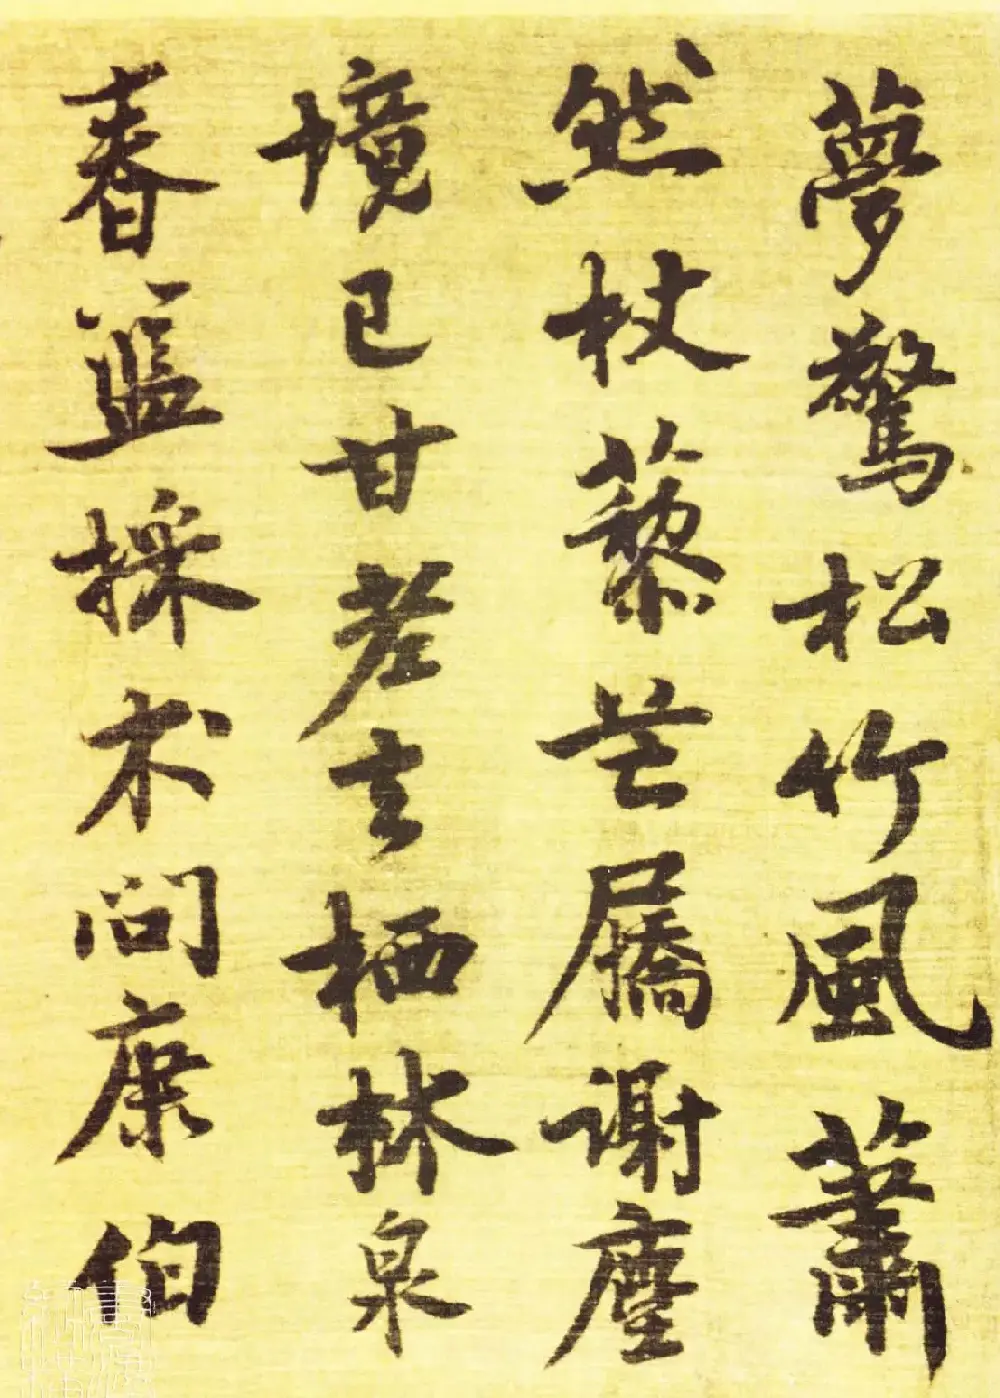 夢驚松竹風蕭
然杖藜芒屩謝塵
境已甘老去栖林泉
春籃採朮問康伯